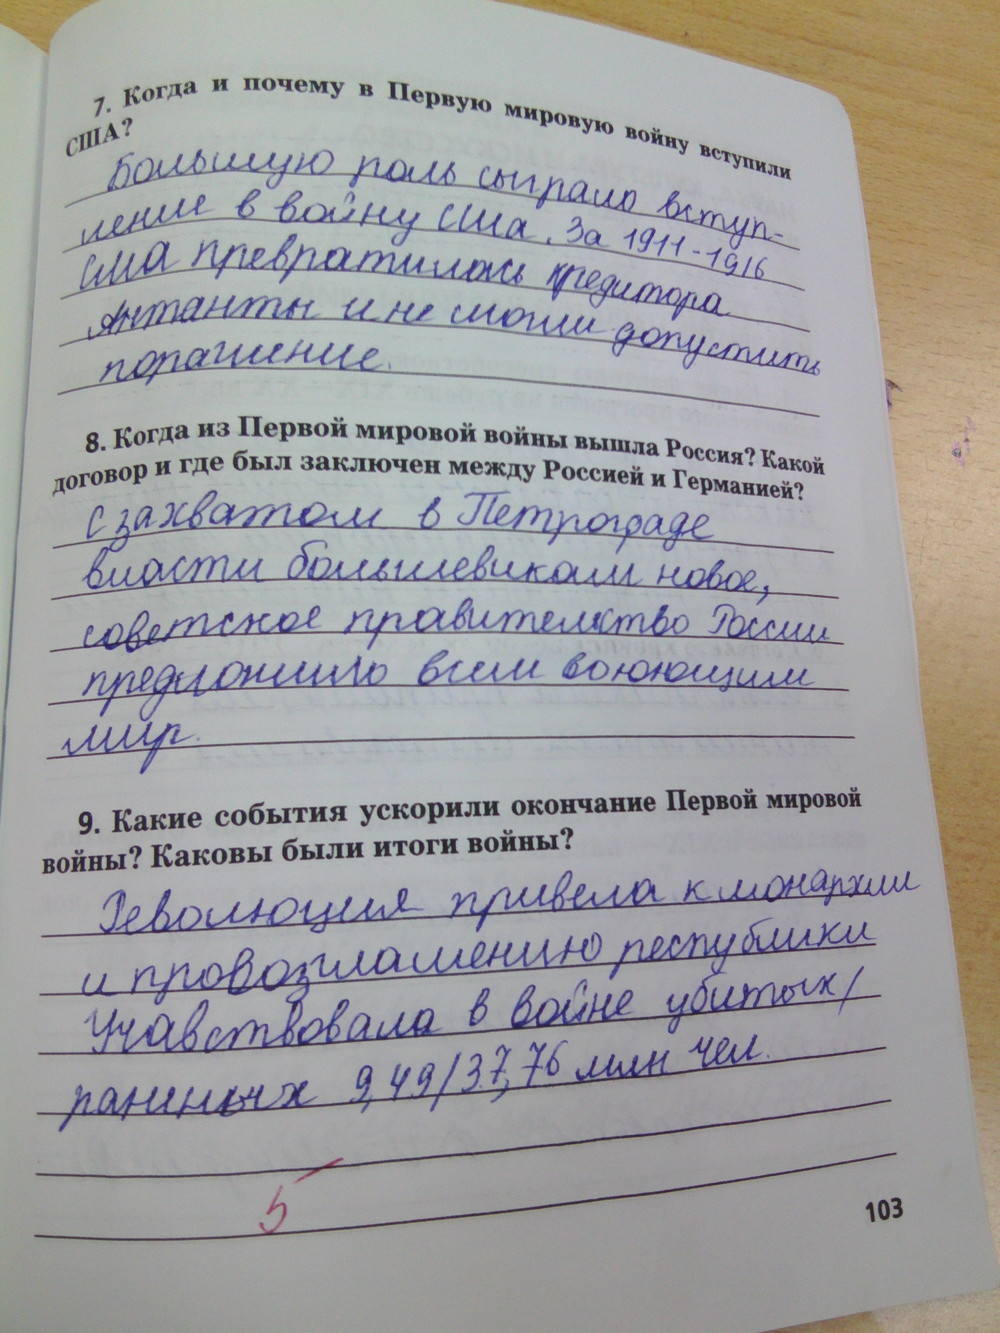 7. Когда и почему в Первую мировую войну вступили
США?
Большую роль сыграло вступ-
ление в войну сша. За 1911-1916
сша превратилась кредитора
Антанты и не могли допустить
поражение.
8. Когда из Первой мировой войны вышла Россия? Какой
договор и где был заключен между Россией и Германией?
с захватом в Петрограде
власти большевикам новое,
советское правительство России
предложило всем воюющим
мир.
9. Какие события ускорили окончание Первой мировой
войны? Каковы были итоги войны?
Революция привела к монархии
и провозглашению республики
Учавствовала в войне убитых/
раниных 9,49/37,76 млн чел.
5
103